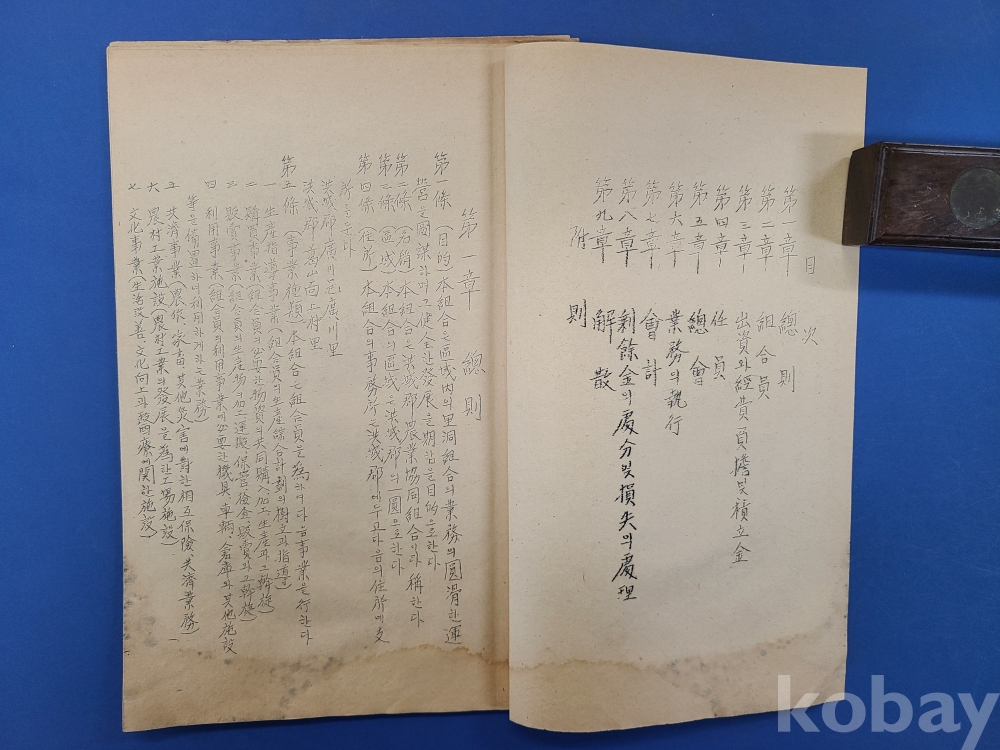 目次
第一章 總則
第二章 組合員
第三章 出資와 經費負擔 및 積立金
第四章 任員
第五章 總會
第六章 業務의 執行
第七章 會計
第八章 剩餘金의 處分 및 損失의 處理
第九章 解散
附則
第一章 總則
第一條 (目的) 本組合은 區域內의 里洞組合의 業務의 圓滑한 運
營을 圖謀하며 그 健全한 發展을 期함을 目的으로 한다
第二條 (名稱) 本組合은 洪城郡農業協同組合이라 稱한다
第三條 (區域) 本組合의 區域은 洪城郡의 一圓으로 한다
第四條 (住所) 本組合의 事務所는 洪城郡에 두고 다음의 住所에 支
所를 둔다
洪城郡 廣川邑 廣川里
洪城郡 高道面 上村里
第五條 (事業種類) 本組合은 組合員을 爲하여 다음 事業을 行한다
一 生產指導事業 (組合員의 生產綜合計劃의 樹立과 指導)
二 購買事業 (組合員의 必要한 物資의 共同購入 加工 生產과 그 斡旋)
三 販賣事業 (組合員의 生產物의 加工 運搬 保管 檢查 販賣와 그 斡旋)
四 利用事業 (組合員의 利用事業에 必要한 機具 車輛 倉庫와 其他 施設
等을 備置하여 利用하게 하는 業務)
五 共濟事業 (農作 家畜 其他 災害에 對한 相互保險 共濟業務)
六 農村工業施設 (農村工業의 發展을 爲한 工場施設)
七 文化事業 (生活改善 文化向上과 醫療에 関한 施設)
kobay